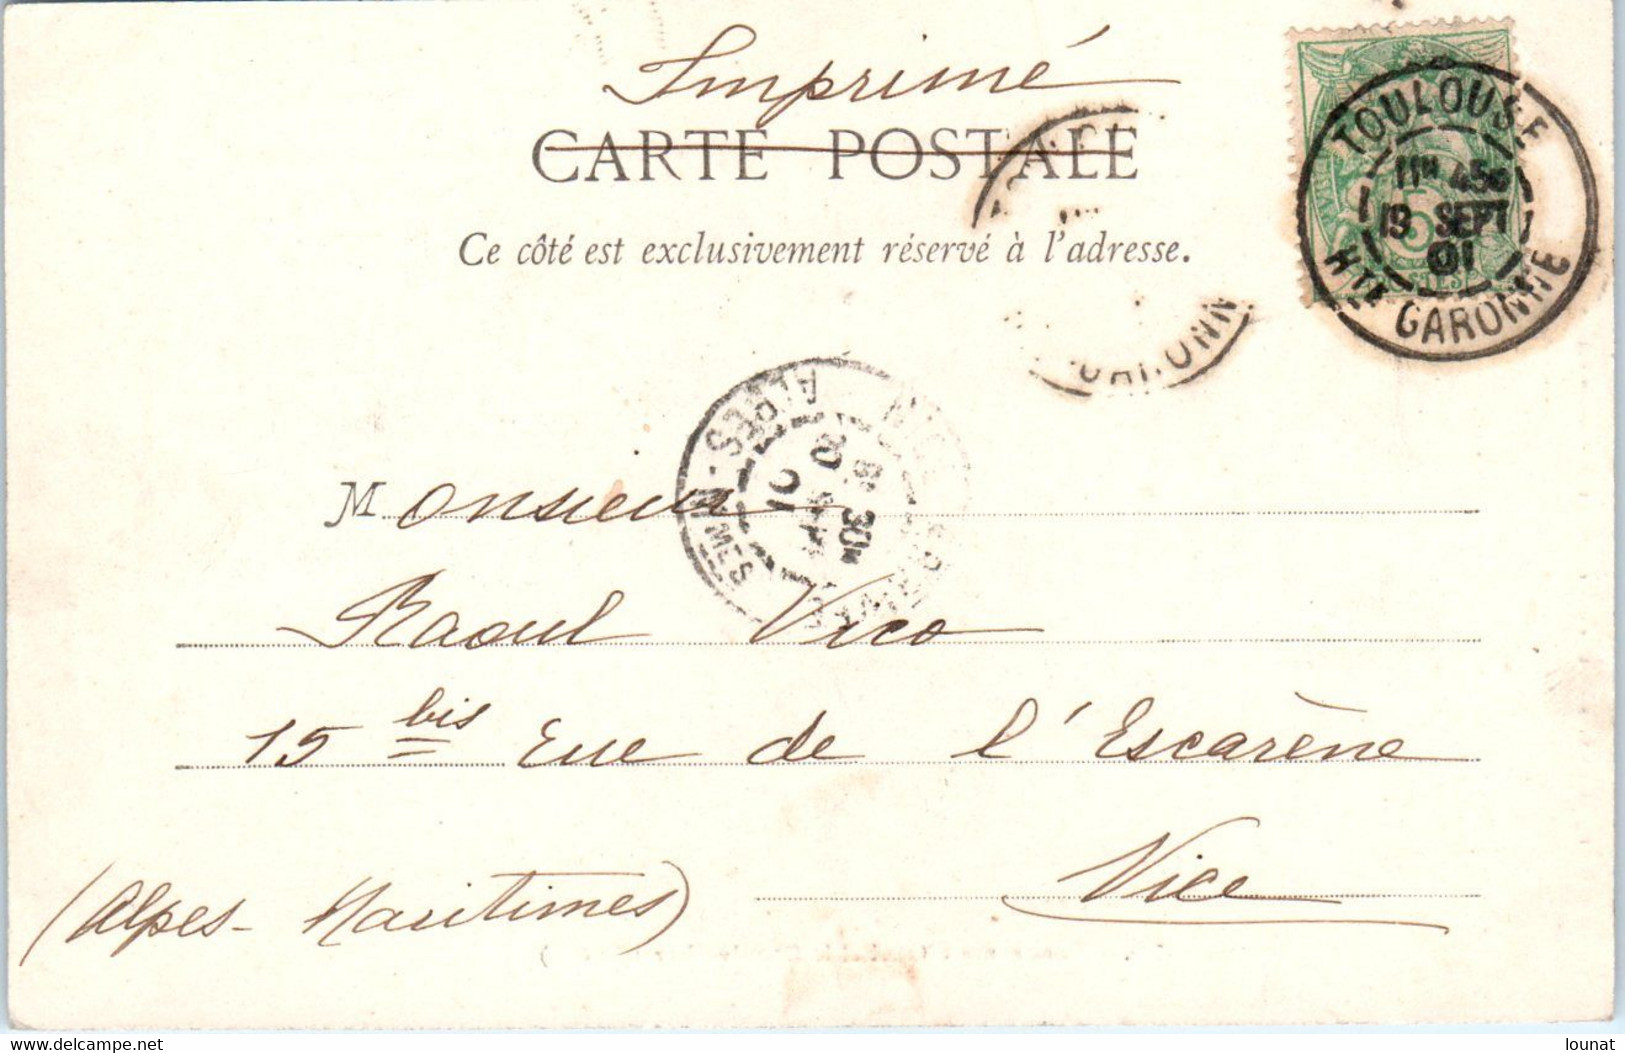 Imprimé
CARTE POSTALE
Ce côté est exclusivement réservé à l'adresse.
TOULOUSE
19 SEPT
01
HTE GARONNE
ALPES
Monsieur
Raoul Vico
15 bis Rue de l'Escarène
Nice
(Alpes-Maritimes)
lounat
www.delcampe.net